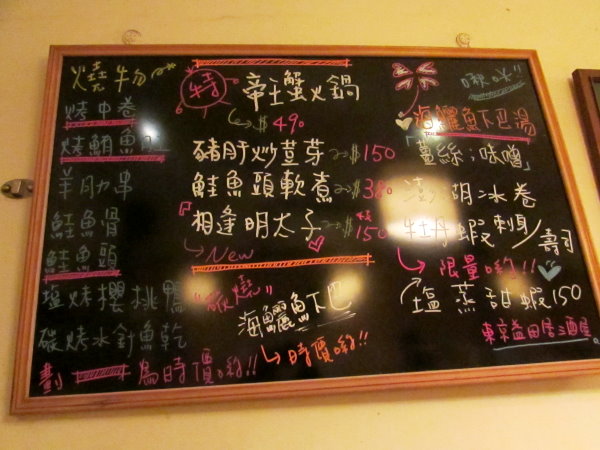 燒物
烤中卷
烤鮪魚
羊肋串
鮭魚骨
鮭魚頭
塩烤櫻桃鴨
碳烤水針魚乾
劃 為時價喲!!
特 帝王蟹火鍋
$490
豬肝炒荳芽 $150
鮭魚頭軟煮 $380
相逢明太子 $150
New
"碳燒"
海鱺魚下巴
時價喲!!
海鱺魚下巴湯
「薑絲;味噌」
澎湖冰卷
牡丹蝦刺身/壽司
限量喲!!
塩蒸甜蝦150
東京益田居酒屋